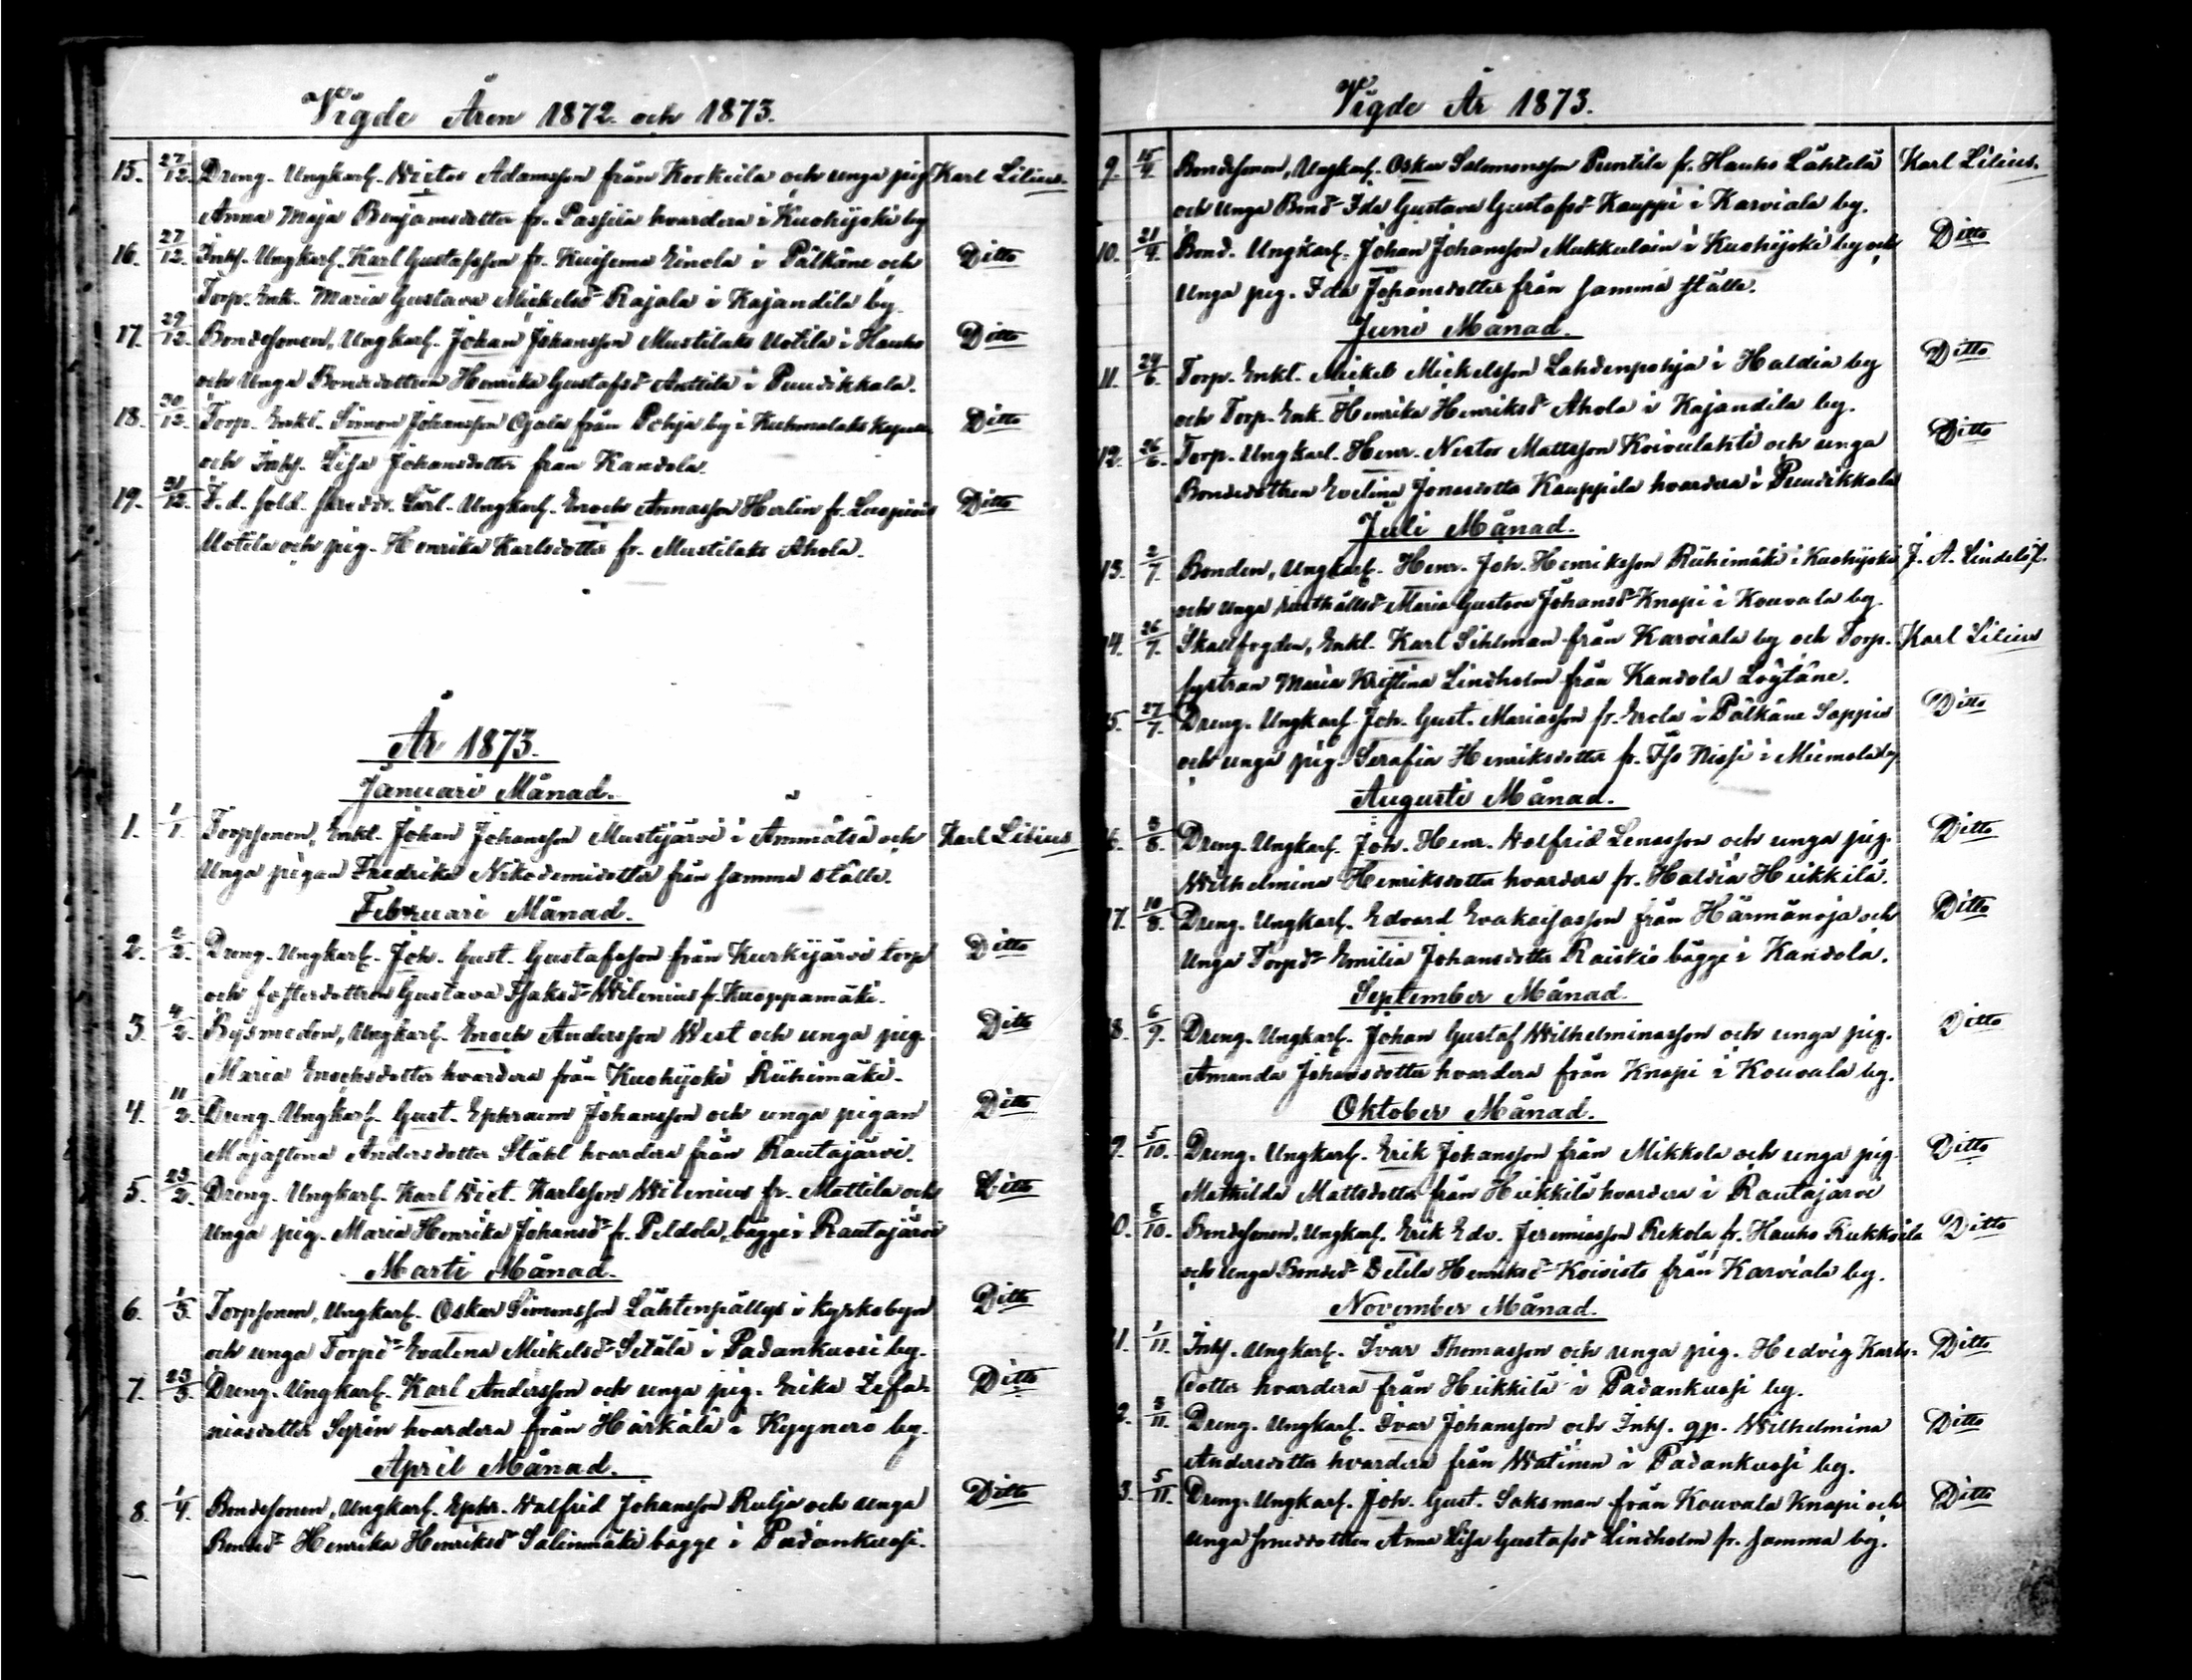 Vigde Åren 1872 och 1873.
15. 27/12. Dreng. Ungkarl. Wictor Adamsson från Korkeila och unga pig Karl Lilius.
Anna Maja Benjamsdotter fr. Passila hvardera i Kuohijoki by
16. 27/12. Inhs. Ungkarl. Karl Gustafsson fr. Kuisema Einola i Pälkäne och Ditto
Torp. Enk. Maria Gustava Mickelsd Rajala i Kajandila by.
17. 29/12. Bondesonen, Ungkarl. Johan Johansson Mustilaks Uotila i Hauho Ditto
och Unga Bondedottren Henrika Gustafsd Anttila i Puudikkala.
18. 30/12. Torp. Enkl. Simon Johansson Ojala från Pohja by i Kuhmalaks Ditto
och Inhs. Lisa Johansdotter från Kandola.
19. 31/12. F. d. sold. Lärl. Ungkarl. Enoch Annasson Herlin fr. Ditto
Uotila och pig. Henrika Karlsdotter fr. Mustilaks Ahola.
År 1873.
Januari Månad.
1. 1/1. Torpsonen, Enkl. Johan Johansson Mustijärvi i Ämmätsä och Karl Lilius
Unga pigan Fredrika Nikodemidotter från samma ställe.
Februari Månad.
2. 2/2. Dreng. Ungkarl. Joh. Gust. Gustafsson från Kurkijärvi torp Ditto
och fosterdottren Gustava Isaksd Wilenius fr. Kuoppamäki.
3. 4/2. Bysmeden, Ungkarl. Enoch Andersson West och unga pig. Ditto
Maria Enochsdotter hvardera från Kuohijoki Riihimäki.
4. 11/2. Dreng. Ungkarl. Gust. Ephraim Johansson och unga pigan Ditto
Majastina Andersdotter Ståhl hvardera från Rautajärvi.
5. 23/2. Dreng. Ungkarl. Karl Wict. Karlsson Wilenius fr. Mattila och Ditto
Unga pig. Maria Henrika Johansd fr. Peldola, bägge i Rautajärvi
Marti Månad.
6. 1/3. Torpsonen, Ungkarl. Oskar Simonsson Lähtenpällys i kyrkobyn Ditto
och unga Torpd Evalena Mickelsd Setälä i Padankuosi by.
7. 23/3. Dreng. Ungkarl. Karl Andersson och unga pig. Erika Zefa- Ditto
niasdotter Syrén hvardera från Härkälä i Kyynerö by.
April Månad.
8. 1/4 Bondesonen, Ungkarl. Ephr. Walfrid Johansson Rulja och unga Ditto
Bonded Henrika Henriksd Salinmäki bägge i Padankuosi.
Vigde År 1873.
9. 15/4 Bondesonen, Ungkarl. Oskar Salomonsson Puntila fr. Hauho Lähtelä Karl Lilius.
och Unga Bond Ida Gustava Gustafsd Kauppi i Karviala by.
10. 21/4. Bond. Ungkarl. Johan Johansson Mukkulain i Kuohijoki by och Ditto
Unga pig. Ida Johansdotter från samma ställe.
Juni Månad.
11. 24/6. Torp. Enkl. Mickel Mickelsson Lahdenpohja i Haldia by Ditto
och Torp. Enk. Henrika Henriksd Ahola i Kajandila by.
12. 26/6. Torp. Ungkarl. Henr. Nestor Mattsson Koivulahti och unga Ditto
Bondedottren Evelina Jonasdotter Kauppila hvardera i Puudikkala
Juli Månad.
13. 2/7. Bonden, Ungkarl. Henr. Joh. Henriksson Riihimäki i Kuohijoki J. A. Lindelöf.
och unga rusthållsd Maria Gustava Johansd Knapi i Kouvala by.
14. 26/7. Skallfogden, Enkl. Karl Sihlman från Karviala by och Torp. Karl Lilius
systran Maria Kristina Lindholm från Kandola Löytäne.
5. 27/7. Dreng. Ungkarl. Joh. Gust. Mariasson fr. Erola i Pälkäne Sappis Ditto
och unga pig. Serafia Henriksdotter fr. Iso Nissi i Miemola by
Augusti Månad.
6. 3/8. Dreng. Ungkarl. Joh. Henr. Wolfrid Lenasson och unga pig. Ditto
Wilhelmina Henriksdotter hvardera fr. Haldia Heikkilä.
17. 10/8. Dreng. Ungkarl. Edvard Evakaisasson från Härmänoja och Ditto
Unga Torpd Emilia Johansdotter Raiskio bägge i Kandola.
September Månad.
8. 6/9. Dreng. Ungkarl. Johan Gustaf Wilhelminasson och unga pig. Ditto
Amanda Johansdotter hvardera från Knapi i Kouvala by.
Oktober Månad.
9. 5/10. Dreng. Ungkarl. Erik Johansson från Mikkola och unga pig. Ditto
Mathilda Mattsdotter från Heikkilä hvardera i Rautajärvi
0. 8/10. Bondesonen, Ungkarl. Erik Edv. Jeremiasson Rekola fr. Hauho Rukkoila Ditto
och Unga Bonded Delila Henriksd Koivisto från Karviala by.
November Månad.
1. 1/11. Inhs. Ungkarl. Ivar Thomasson och unga pig. Hedvig Karls- Ditto
dotter hvardera från Heikkilä i Padankuosi by.
2. 3/11. Dreng. Ungkarl. Ivar Johansson och Inhs. gp. Wilhelmina Ditto
Andersdotter hvardera från Watinen i Padankuosi by.
3. 5/11. Dreng. Ungkarl. Joh. Gust. Saksman från Kouvala Knapi och Ditto
Unga smeddottren Anna Lisa Gustafsd Lindholm fr. samma by.